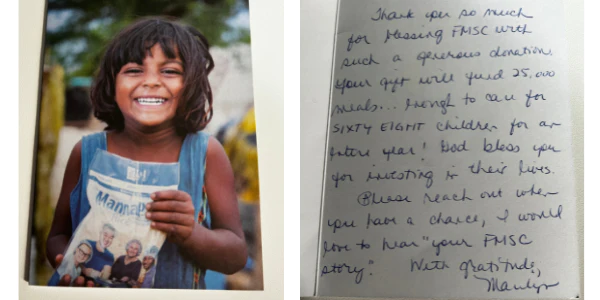 MannaP
Thank you so much
for blessing FMSC with
such a generous donation.
Your gift will yield 25,000
meals... enough to care for
SIXTY EIGHT children for an
entire year! God bless you
for investing in their lives.
Please reach out when
you have a chance, I would
love to hear "your FMSC
story."  With gratitude,
Marilyn